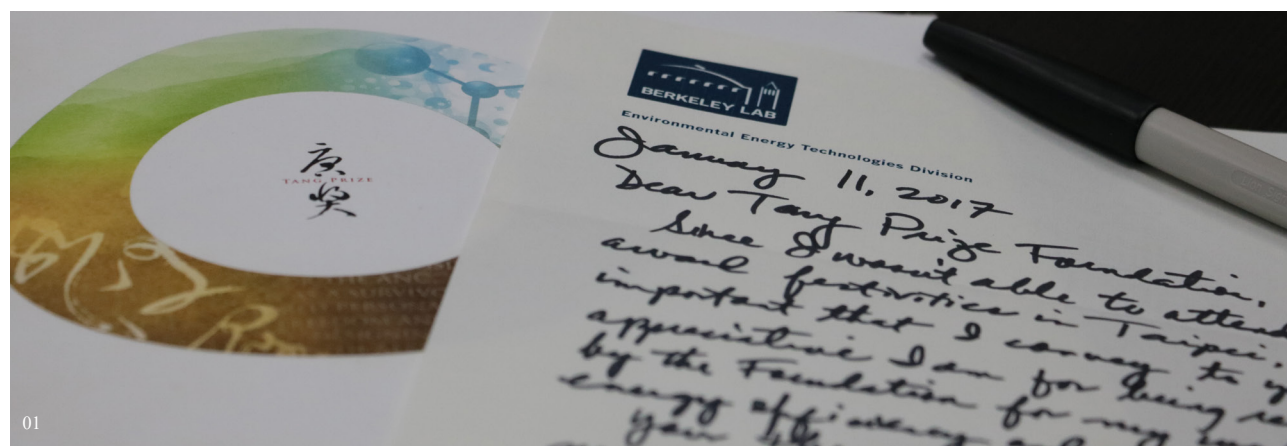 唐
TANG PRIZE
獎
BERKELEY LAB
Environmental Energy Technologies Division
January 11, 2017
Dear Tang Prize Foundation,
Since I wasn't able to attend
award festivities in Taipei,
important that I convey to y
appreciative I am for being re
by the Foundation for my
energy efficiency
your
01